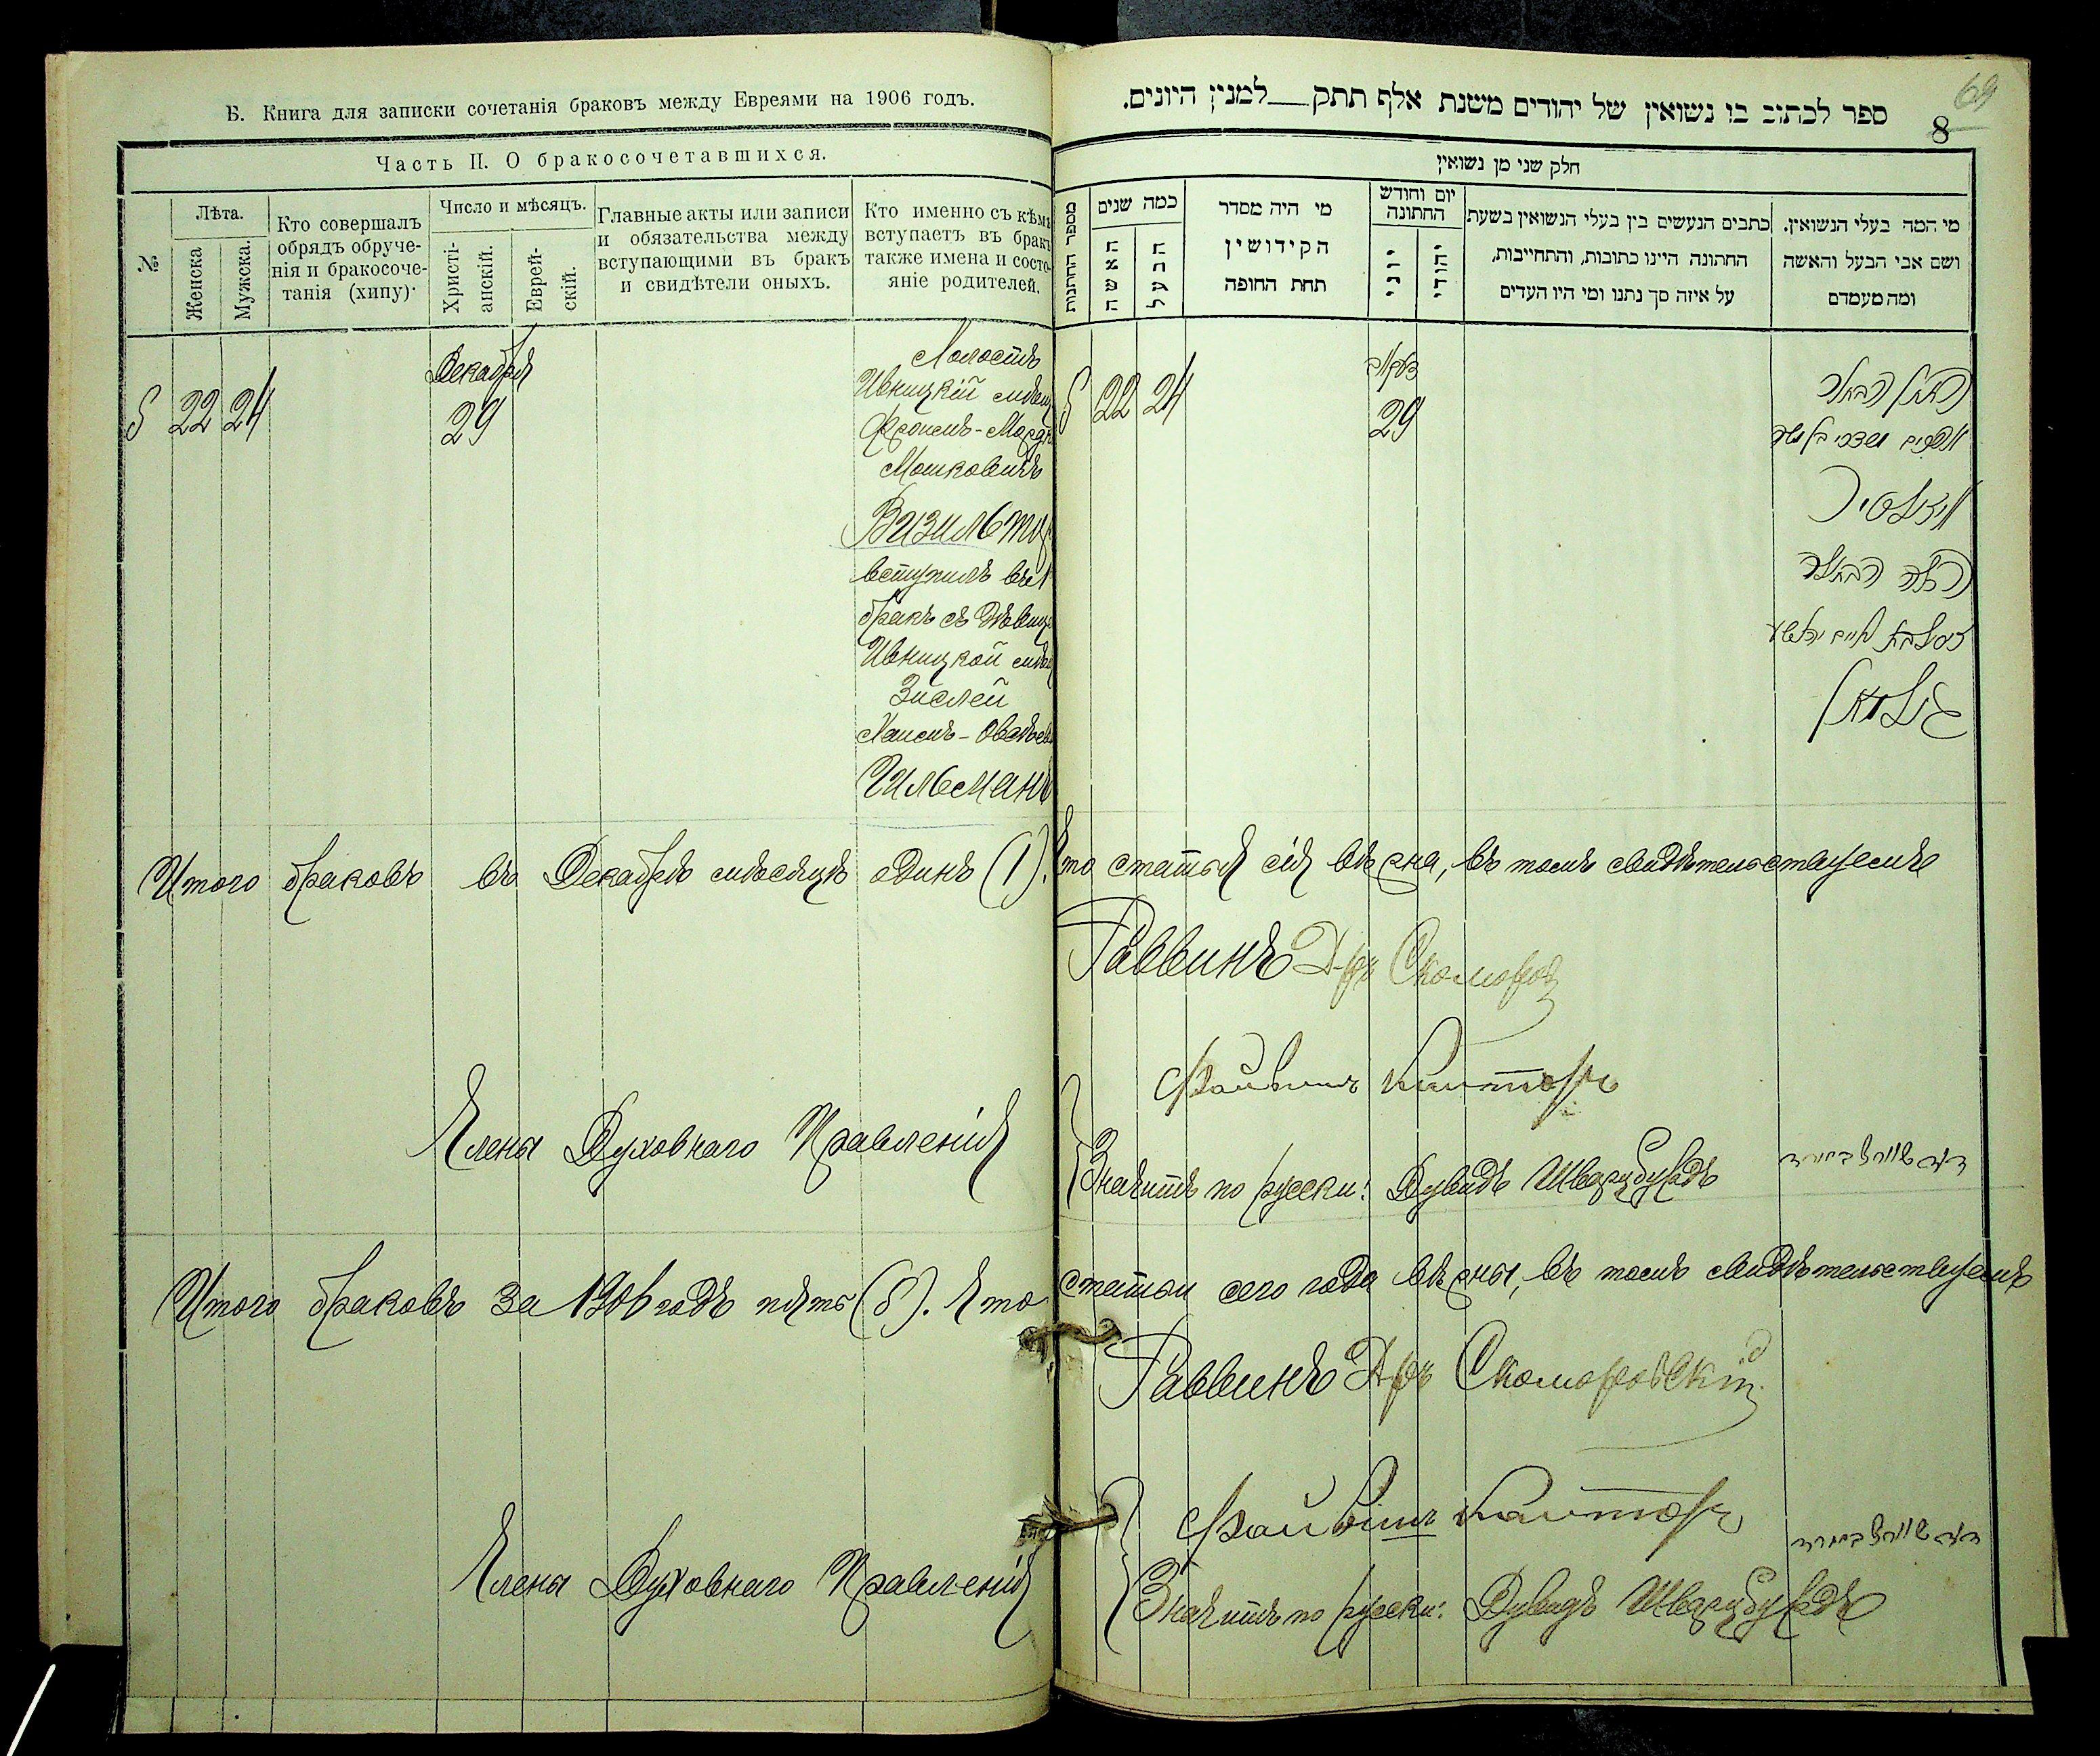 Б. Книга для записки сочетанія браковъ между Евреями на 1906 годъ.
Часть II. О бракосочетавшихся.
№
Лѣта.
Женска
Мужска.
Кто совершалъ
обрядъ обруче-
нія и бракосоче-
танія (хипу)
Число и мѣсяцъ.
Христі-
анскій.
Еврей-
скій.
Главные акты или записи
и обязательства между
вступающими въ бракъ
и свидѣтели оныхъ.
Кто именно съ кѣмъ
вступаетъ въ бракъ
также имена и состо-
яніе родителей.
5 22 24
Декабря
29
Холостъ
Ивницкій мѣщ
Фроимъ-Мордк
Мошковичъ
Визильтир
вступилъ въ 1
бракъ съ дѣвице
Ивницкой мѣщ
Зислей
Хаимъ-Овадьев
Гильманъ
Итого браковъ въ Декабрѣ мѣсяцѣ одинъ (1).
Члены Духовнаго Правленія
Итого браковъ за 1906 годъ пять (5). Что
Члены Духовнаго Правленія
69
8
ספר לכתוב בו נשואין של יהודים משנת אלף תתק למנין היונים.
חלק שני מן נשואין
מספר החתונות
כמה שנים
האשה
הבעל
מי היה מסדר
הקידושין
תחת החופה
יום וחודש
החתונה
יוני
יהודי
כתבים הנעשים בין בעלי הנשואין בשעת
החתונה היינו כתובות, והתחייבות,
על איזה סך נתנו ומי היו העדים
מי המה בעלי הנשואין.
ושם אבי הבעל והאשה
ומה מעמדם
5 22 24
29
Что статья сія вѣрна, въ томъ свидѣтельствуемъ
Раввинъ Д-ръ Скоморов
Файвишъ Канторъ
Значитъ по русски: Дувидъ Шварцбурдъ
статьи сего года вѣрны, въ томъ свидѣтельствуемъ
Раввинъ Д-ръ Скоморовскій
Файвишъ Канторъ
Значитъ по русски: Дувидъ Шварцбурдъ